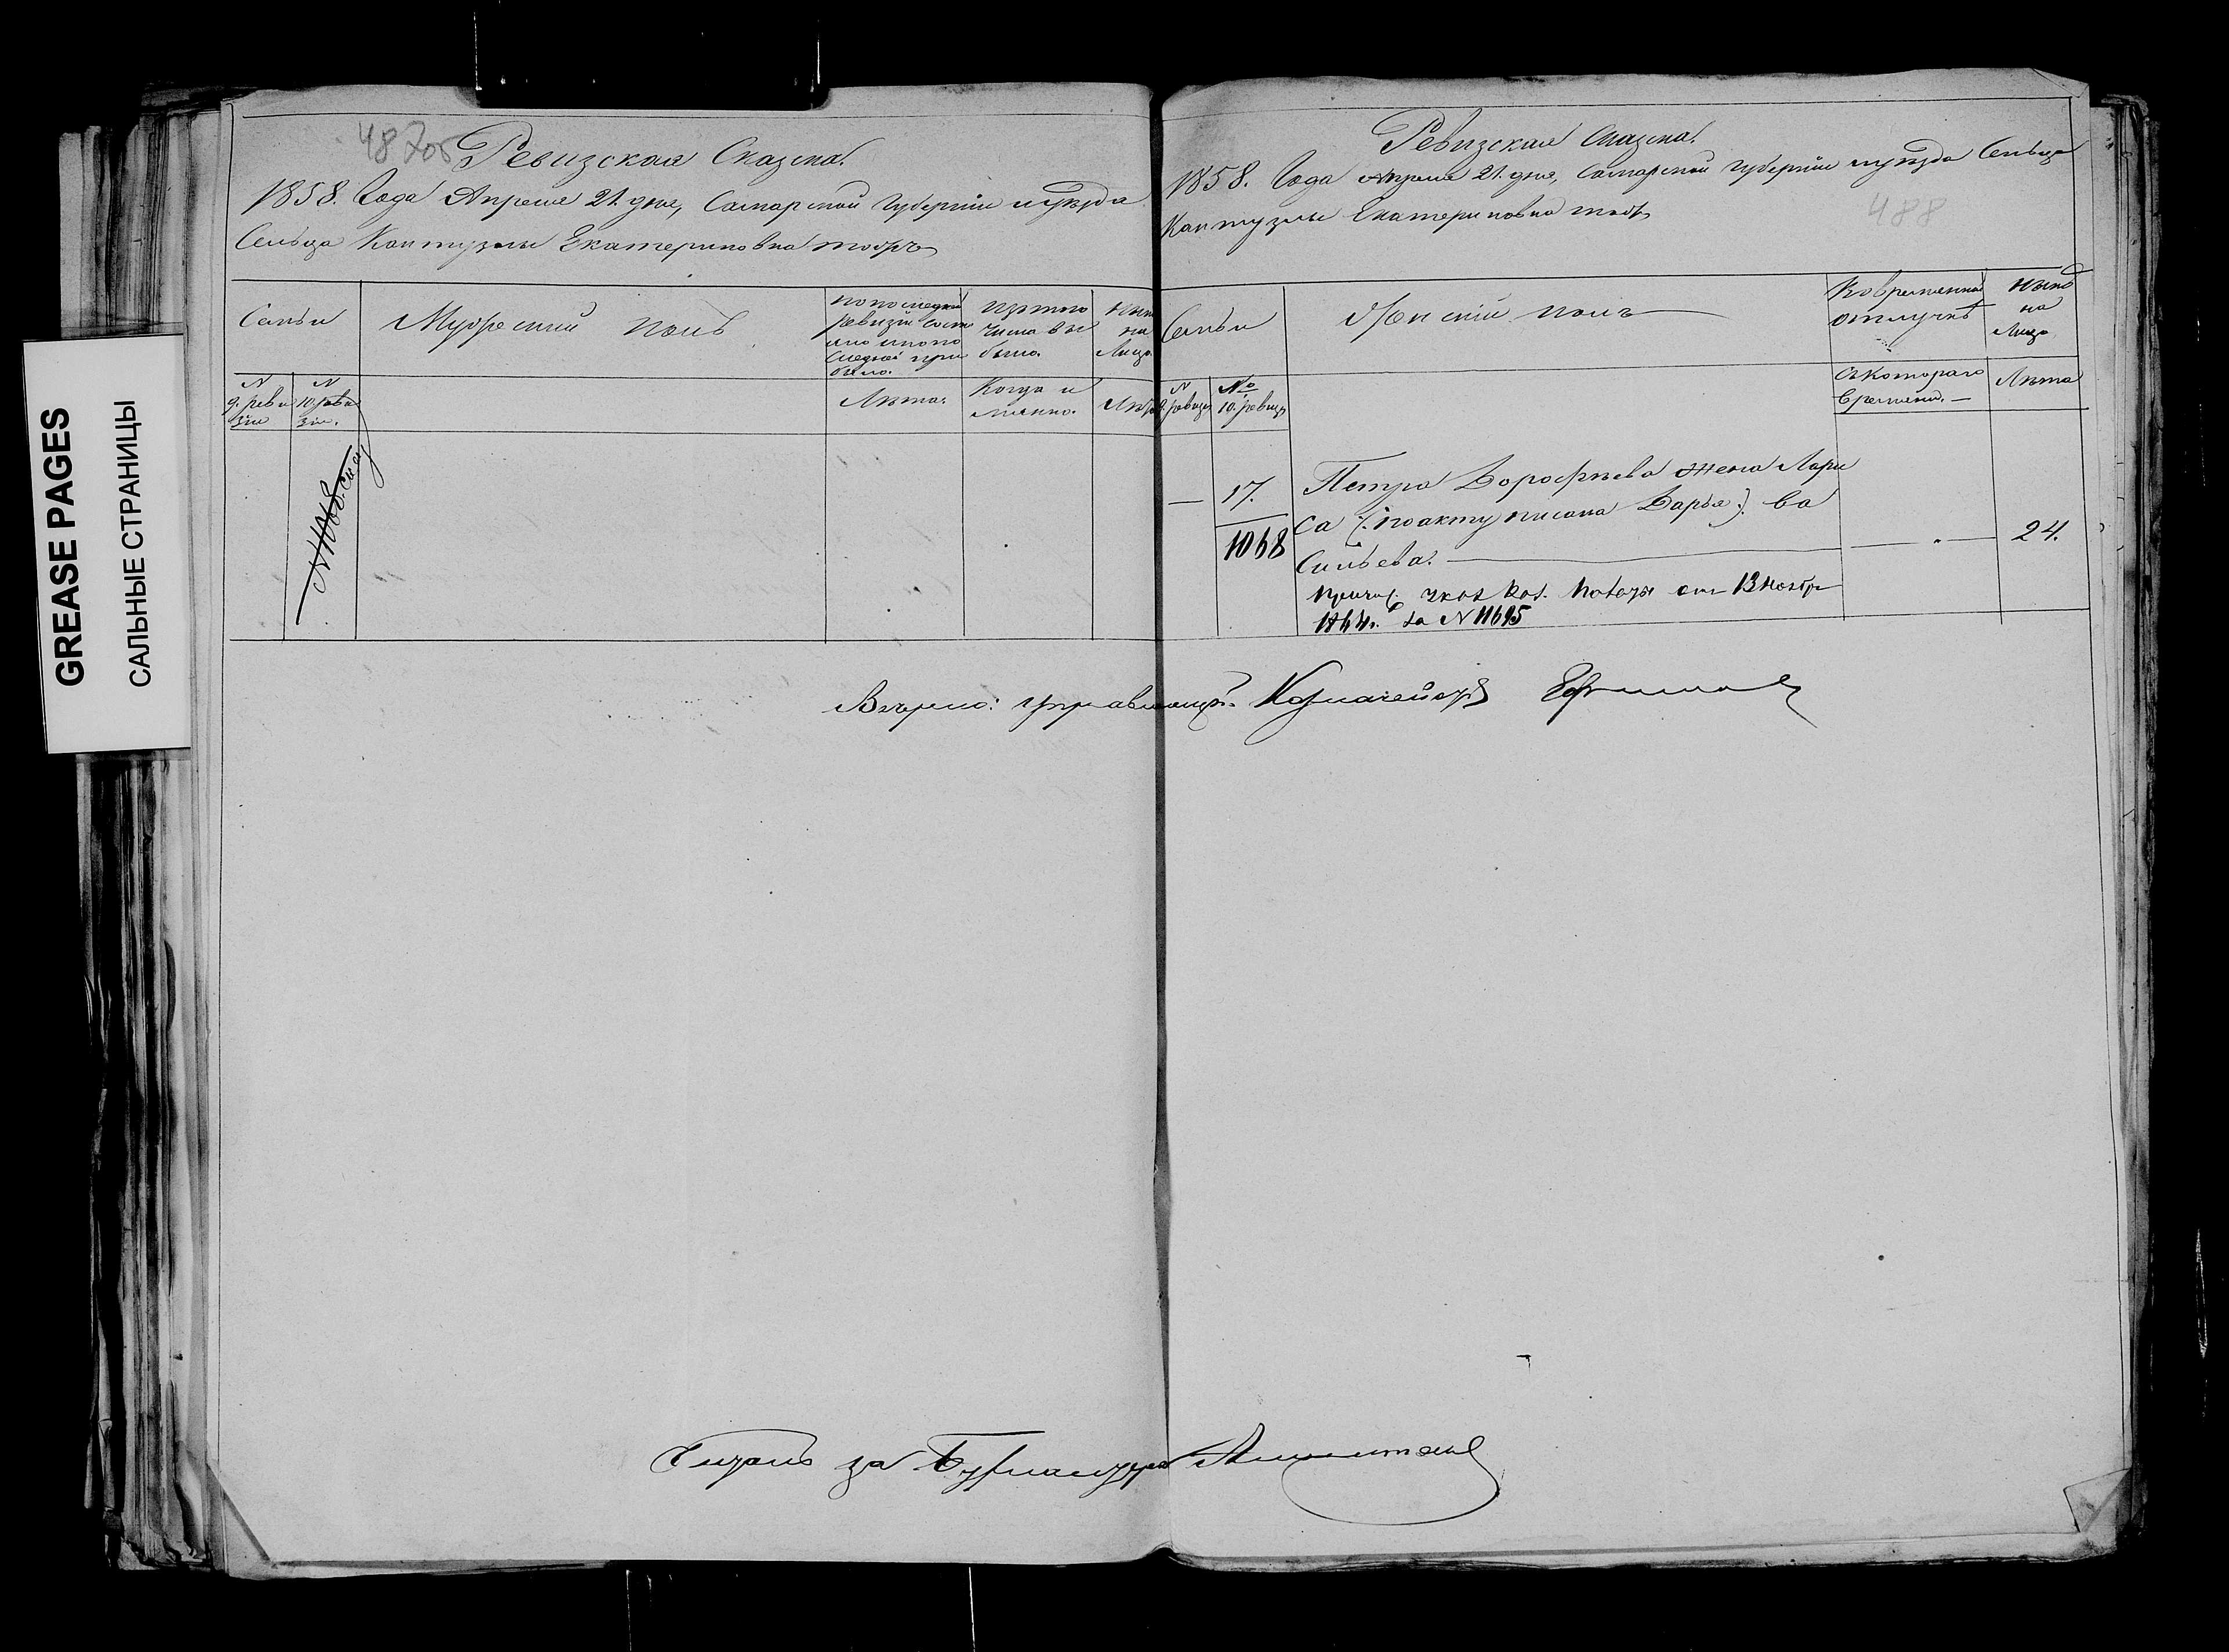 GREASE PAGES
САЛЬНЫЕ СТРАНИЦЫ
487об
Ревизская Сказка.
1858. Года Апреля 21. дня, Самарской Губерніи и уѣзда
Сельца Кантузлы Екатериновка тожъ
Семьи
Мужескій полъ
По последней
ревизіи состо
яло и по по
следней при
было.
Изъ того
числа вы
было.
Ныне
на
Лицо
N
9. реви
зіи
N
10 реви
зіи.
Лѣта.
Когда и
имянно.
Лѣта
Ревизская Сказка.
1858. Года Апреля 21. дня, Самарской Губерніи и уѣзда Сельца
Кантузлы Екатериновка тожъ
488
Семьи
Женскій полъ
Во временной
отлучкѣ
Нынѣ
на
Лицо
N
ревизіи
№
10. ревизіи
Съ котораго
времени.
Лѣта
17.
1068
Петра Дорофѣева жена Лари
са (: по акту писана Дарья :) Ва
сильева.
24.
указ Каз. Палаты от 13 ноября
за N 11695
Вѣрно: Управляющій Казначейств
за Бурмистра